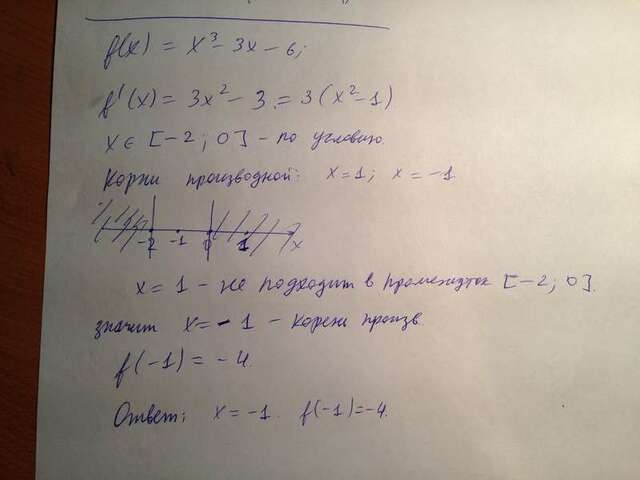 f(x) = x³ - 3x - 6;
f'(x) = 3x² - 3 = 3(x² - 1)
x ∈ [-2; 0] - по условию.
Корни производной: x = 1; x = -1
-2 -1 0 1 x
x = 1 - не подходит в промежуток [-2; 0].
значит x = -1 - корень произв.
f(-1) = -4.
Ответ: x = -1. f(-1) = -4.